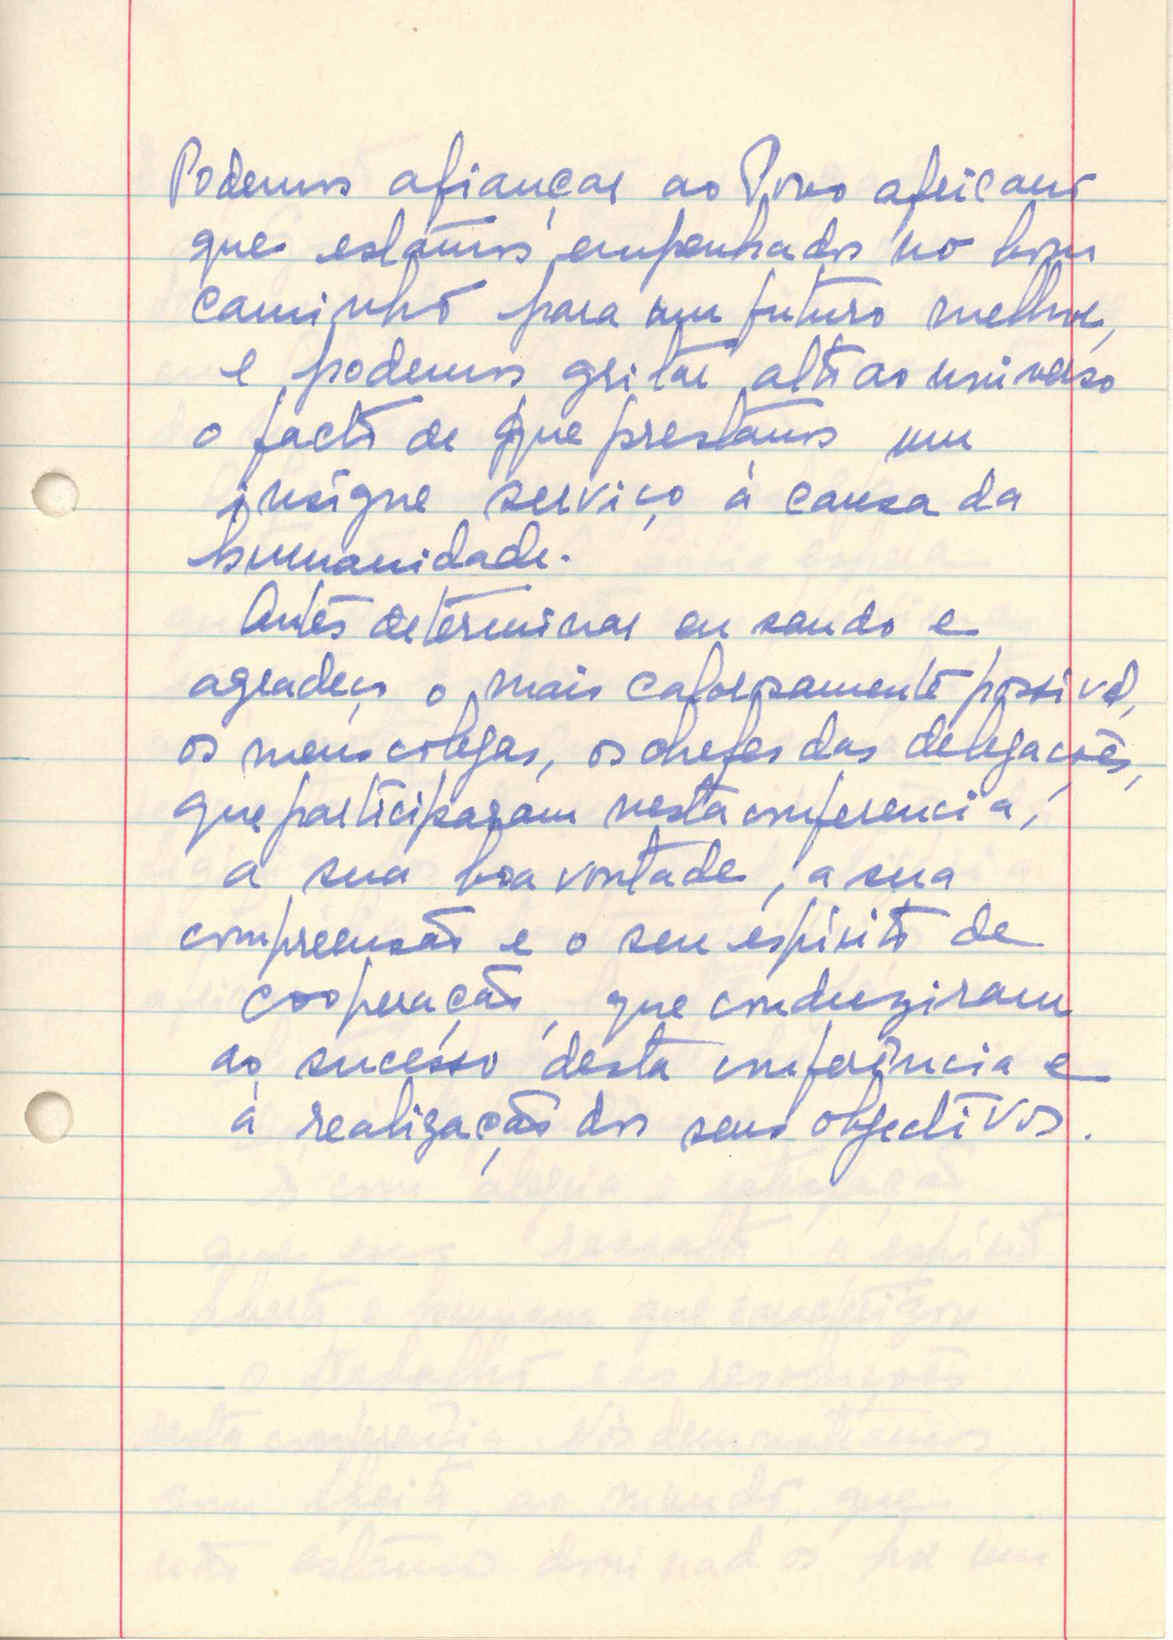 Podemos afiançar ao Povo africano
que estamos empenhados no bom
caminho para um futuro melhor,
e podemos gritar alto ao universo
o facto de que prestamos um
insigne serviço à causa da
humanidade.
Antes de terminar eu saudo e
agradeço, o mais calorosamente possivel,
os meus colegas, os chefes das delegações,
que participaram nesta conferencia,
a sua boa vontade, a sua
compreensão e o seu espirito de
cooperação, que conduziram
ao sucesso desta conferência e
à realização dos seus objectivos.